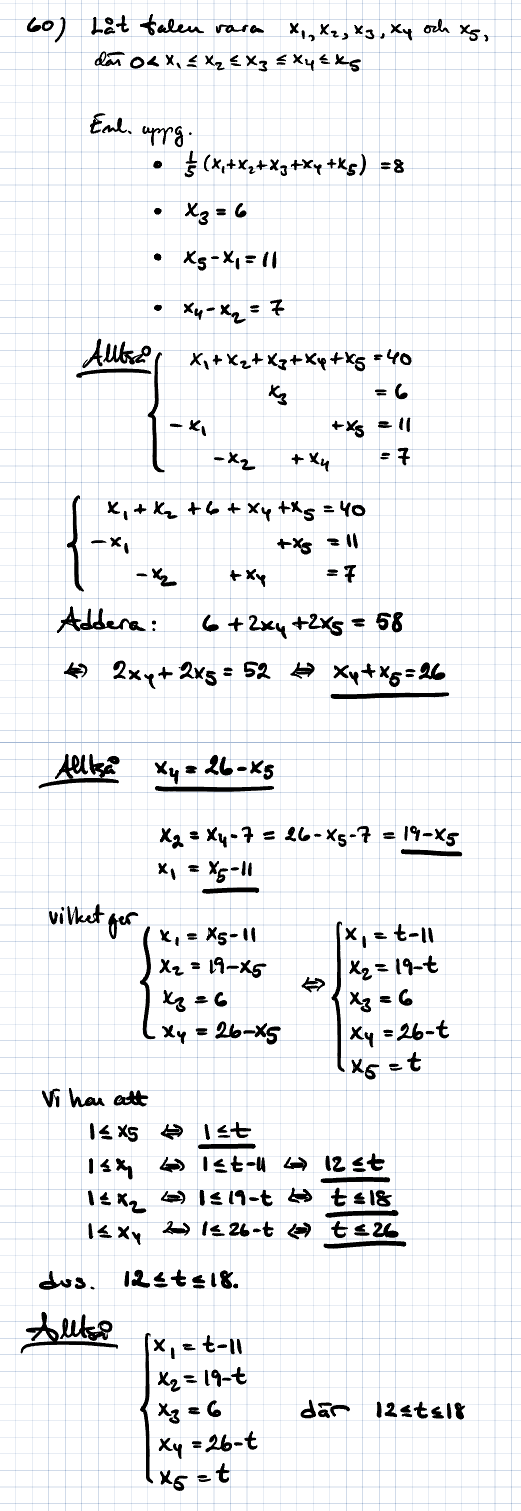 60) Låt talen vara x₁, x₂, x₃, x₄ och x₅,
där 0 < x₁ ≤ x₂ ≤ x₃ ≤ x₄ ≤ x₅
Enl. uppg.
• 1/5 (x₁+x₂+x₃+x₄+x₅) = 8
• x₃ = 6
• x₅-x₁ = 11
• x₄-x₂ = 7
Alltså { x₁+x₂+x₃+x₄+x₅ = 40
x₃ = 6
-x₁ +x₅ = 11
-x₂ +x₄ = 7
{ x₁+x₂+6+x₄+x₅ = 40
-x₁ +x₅ = 11
-x₂ +x₄ = 7
Addera: 6+2x₄+2x₅ = 58
⇔ 2x₄+2x₅ = 52 ⇔ x₄+x₅ = 26
Alltså x₄ = 26-x₅
x₂ = x₄-7 = 26-x₅-7 = 19-x₅
x₁ = x₅-11
vilket ger
{ x₁ = x₅-11
x₂ = 19-x₅
x₃ = 6
x₄ = 26-x₅
⇔ { x₁ = t-11
x₂ = 19-t
x₃ = 6
x₄ = 26-t
x₅ = t
Vi har att
1 ≤ x₅ ⇔ 1 ≤ t
1 ≤ x₁ ⇔ 1 ≤ t-11 ⇔ 12 ≤ t
1 ≤ x₂ ⇔ 1 ≤ 19-t ⇔ t ≤ 18
1 ≤ x₄ ⇔ 1 ≤ 26-t ⇔ t ≤ 26
dvs. 12 ≤ t ≤ 18.
Alltså
{ x₁ = t-11
x₂ = 19-t
x₃ = 6 där 12 ≤ t ≤ 18
x₄ = 26-t
x₅ = t